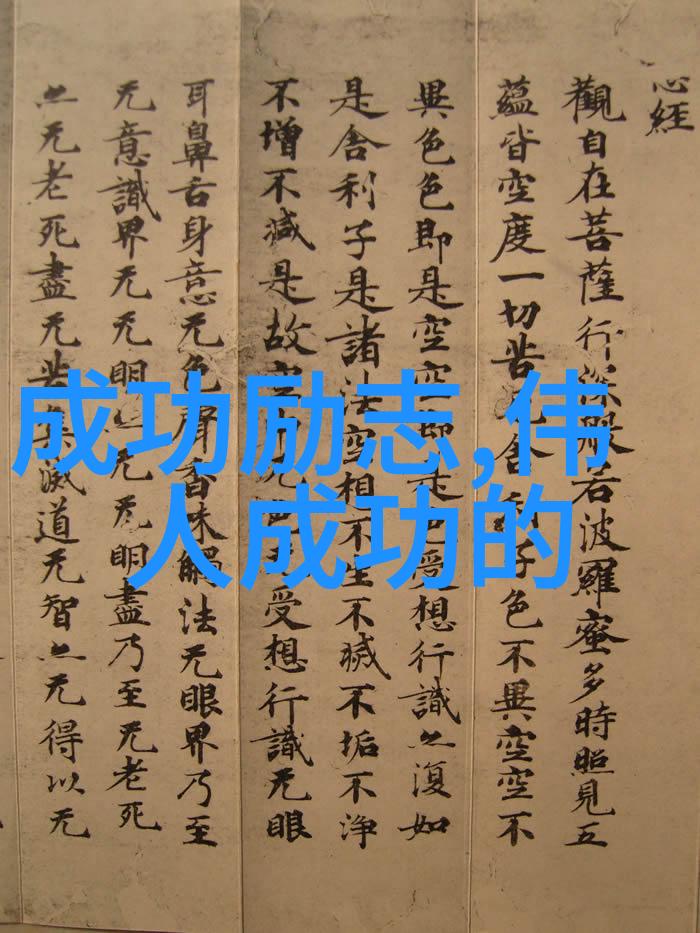 心經
觀自在菩薩行深般若波羅蜜多時照見五
蘊皆空度一切苦厄舍利子色不異空空不
異色色即是空空即是色受想行識亦復如
是舍利子是諸法空相不生不滅不垢不淨
不增不減是故空中无色无受想行識无眼
耳鼻舌身意无色聲香味觸法无眼界乃至
无意識界无无明亦无无明盡乃至无老死
亦无老死盡无苦集滅道无智亦无得以无
成功励志,伟
人成功的